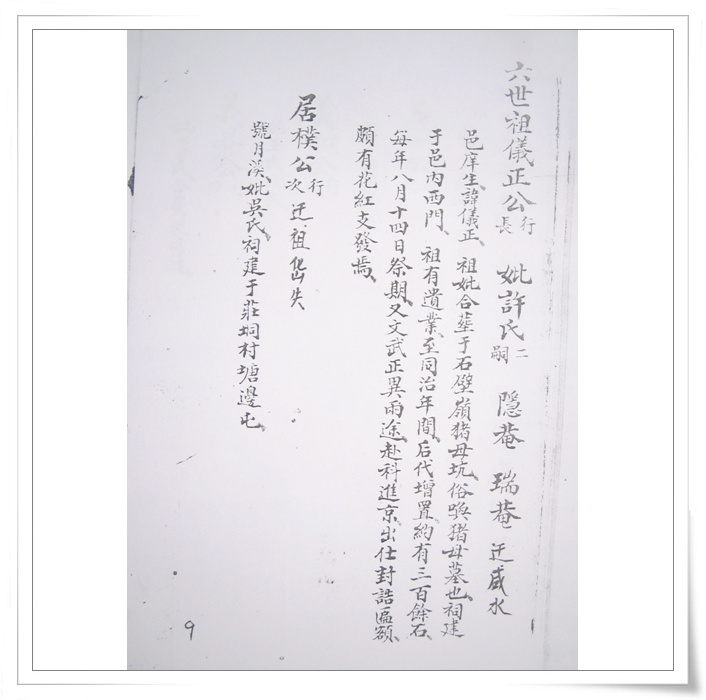 六世祖儀正公行長 妣許氏二嗣 隱菴 瑞菴 迁咸水
邑庠生、諱儀正、祖妣合塟于石壁嶺猪母坑、俗喚猪母墓也、祠建
于邑內西門、祖有遺業、至同治年間、后代增置、約有三百餘石、
每年八月十四日祭期、又文武正異兩途、赴科進京出仕封誥匾額、
頗有花紅支發焉、
居樸公行次 迁祖 失
號月溪、妣吳氏、祠建于莊垌村塘邊屯、
9